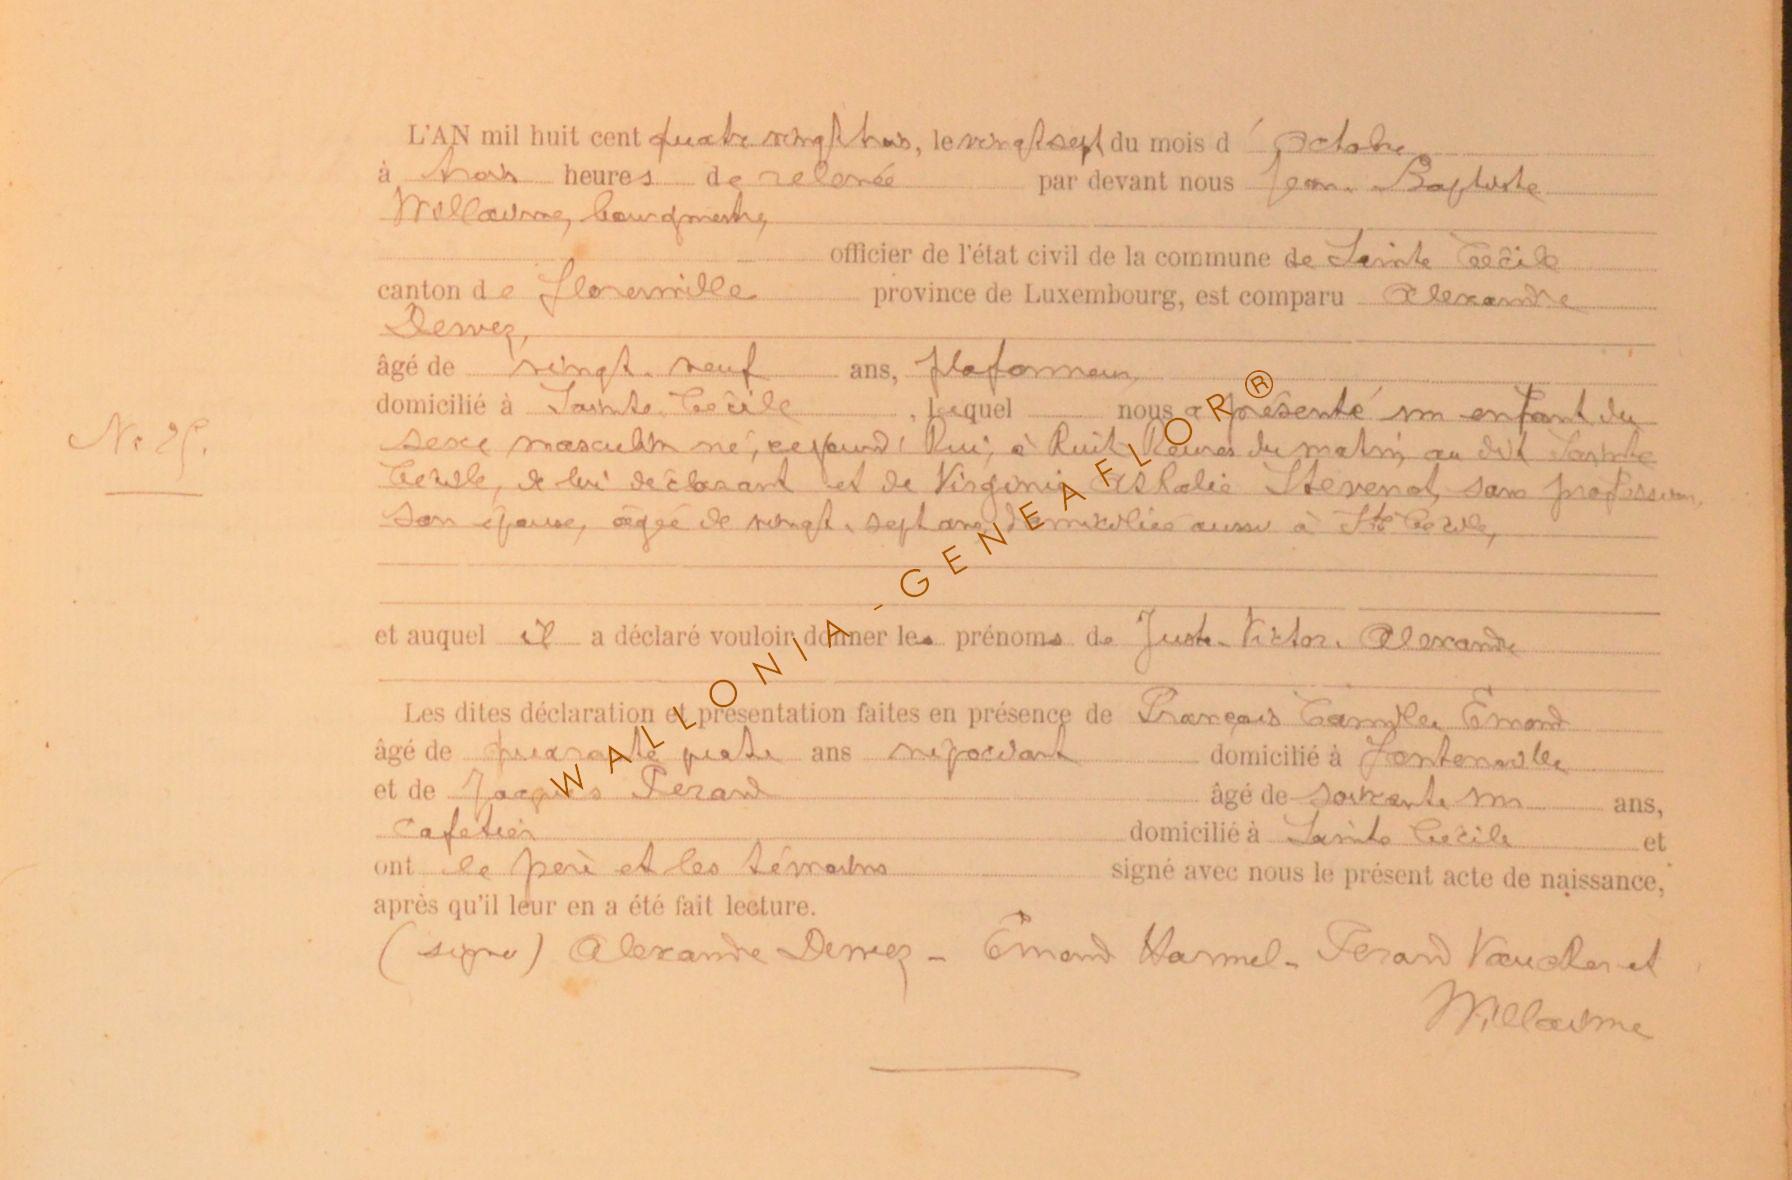 L'AN mil huit cent quatre vingt trois, le vingt sept du mois d' Octobre
à trois heures de relevée par devant nous Jean-Baptiste
Willaume, bourgmestre,
officier de l'état civil de la commune de Sainte Cécile
canton de Florenville province de Luxembourg, est comparu Alexandre
Dewez,
âgé de vingt-neuf ans, plafonneur,
domicilié à Sainte Cécile, lequel nous a présenté un enfant du
N° 25.
sexe masculin né, cejourd'hui, à huit heures du matin, au dit Sainte
Cécile, de lui déclarant et de Virginie Athalie Stevenot, sans profession,
son épouse, âgée de vingt-sept ans, domiciliée aussi à Ste Cécile,
et auquel il a déclaré vouloir donner les prénoms de Juste-Victor-Alexandre
Les dites déclaration et présentation faites en présence de François Camille Emond
âgé de quarante quatre ans négociant domicilié à Fontenoille
et de Jacques Perard âgé de soixante un ans,
cafetier domicilié à Sainte Cécile et
ont le père et les témoins signé avec nous le présent acte de naissance,
après qu'il leur en a été fait lecture.
(signé) Alexandre Dewez - Emond Hamel - Perard Vaucher et
Willaume
WALLONIA-GENEAFLOR®